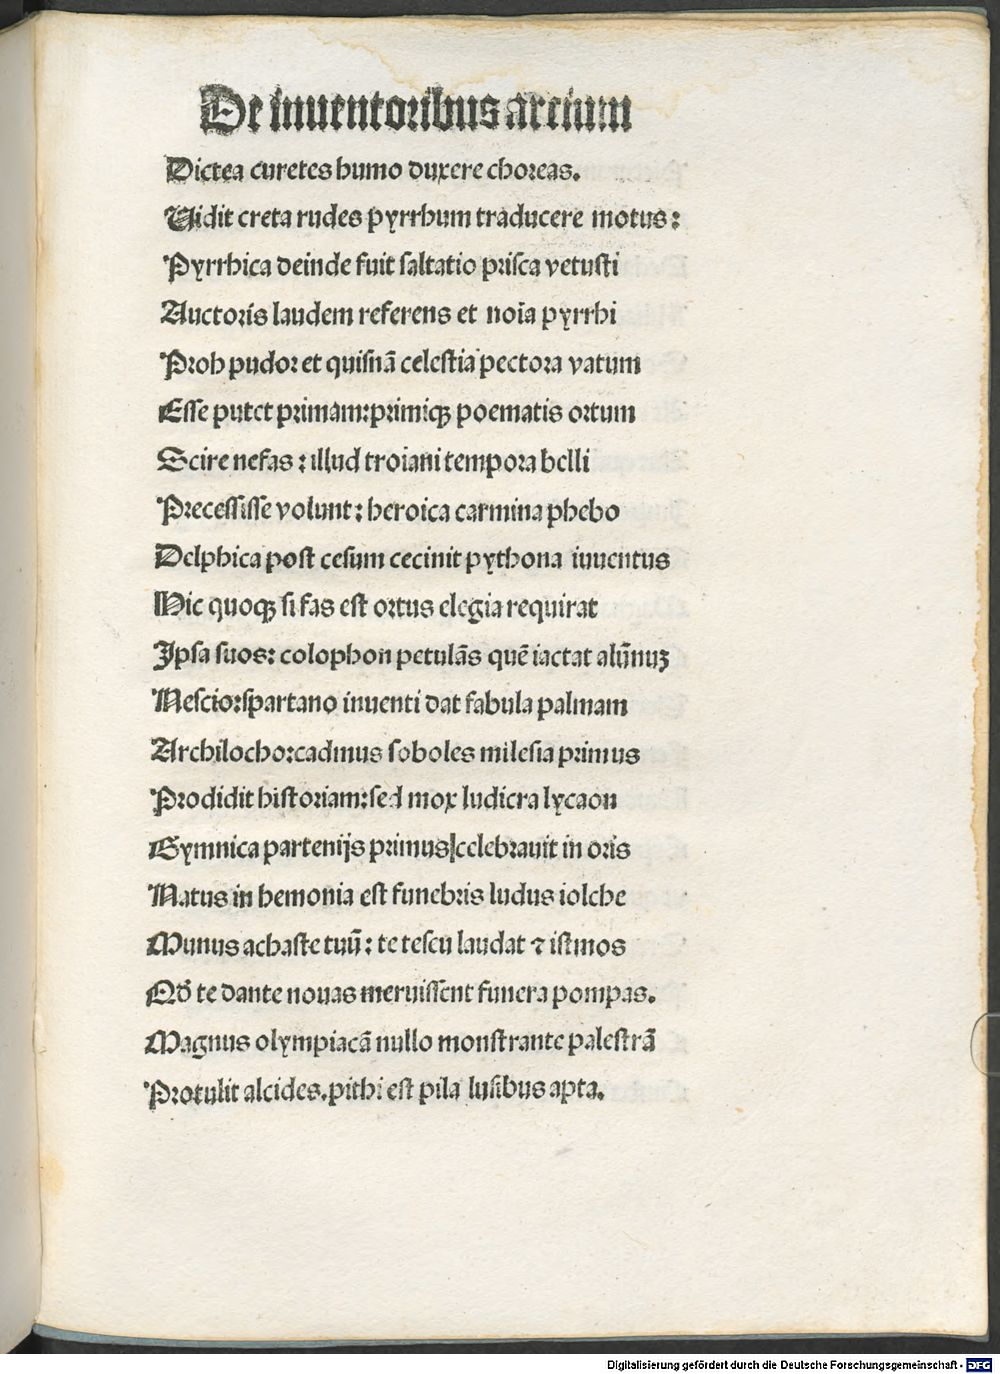 De inuentoribus arcium
Dictea curetes humo duxere choreas.
Uidit creta rudes pyrrhum traducere motus:
Pyrrhica deinde fuit saltatio prisca vetusti
Auctoris laudem referens et noīa pyrrhi
Proh pudor et quisnā celestia pectora vatum
Esse putet primam: primiqꝫ poematis ortum
Scire nefas: illud troiani tempora belli
Precessisse volunt: heroica carmina phebo
Delphica post cesum cecinit pythona iuuentus
Hic quoqꝫ si fas est ortus elegia requirat
Ipsa suos: colophon petulās quē iactat alūnuꝫ
Nescio: spartano inuenti dat fabula palmam
Archilocho: cadmus soboles milesia primus
Prodidit historiam: sed mox ludicra lycaon
Gymnica partenijs primus celebrauit in oris
Natus in hemonia est funebris ludus iolche
Munus achaste tuū: te tescu laudat ⁊ istmos
Qđ te dante nouas meruissent funera pompas.
Magnus olympiacā nullo monstrante palestrā
Protulit alcides. pithi est pila lusibus apta.
Digitalisierung gefördert durch die Deutsche Forschungsgemeinschaft - DFG